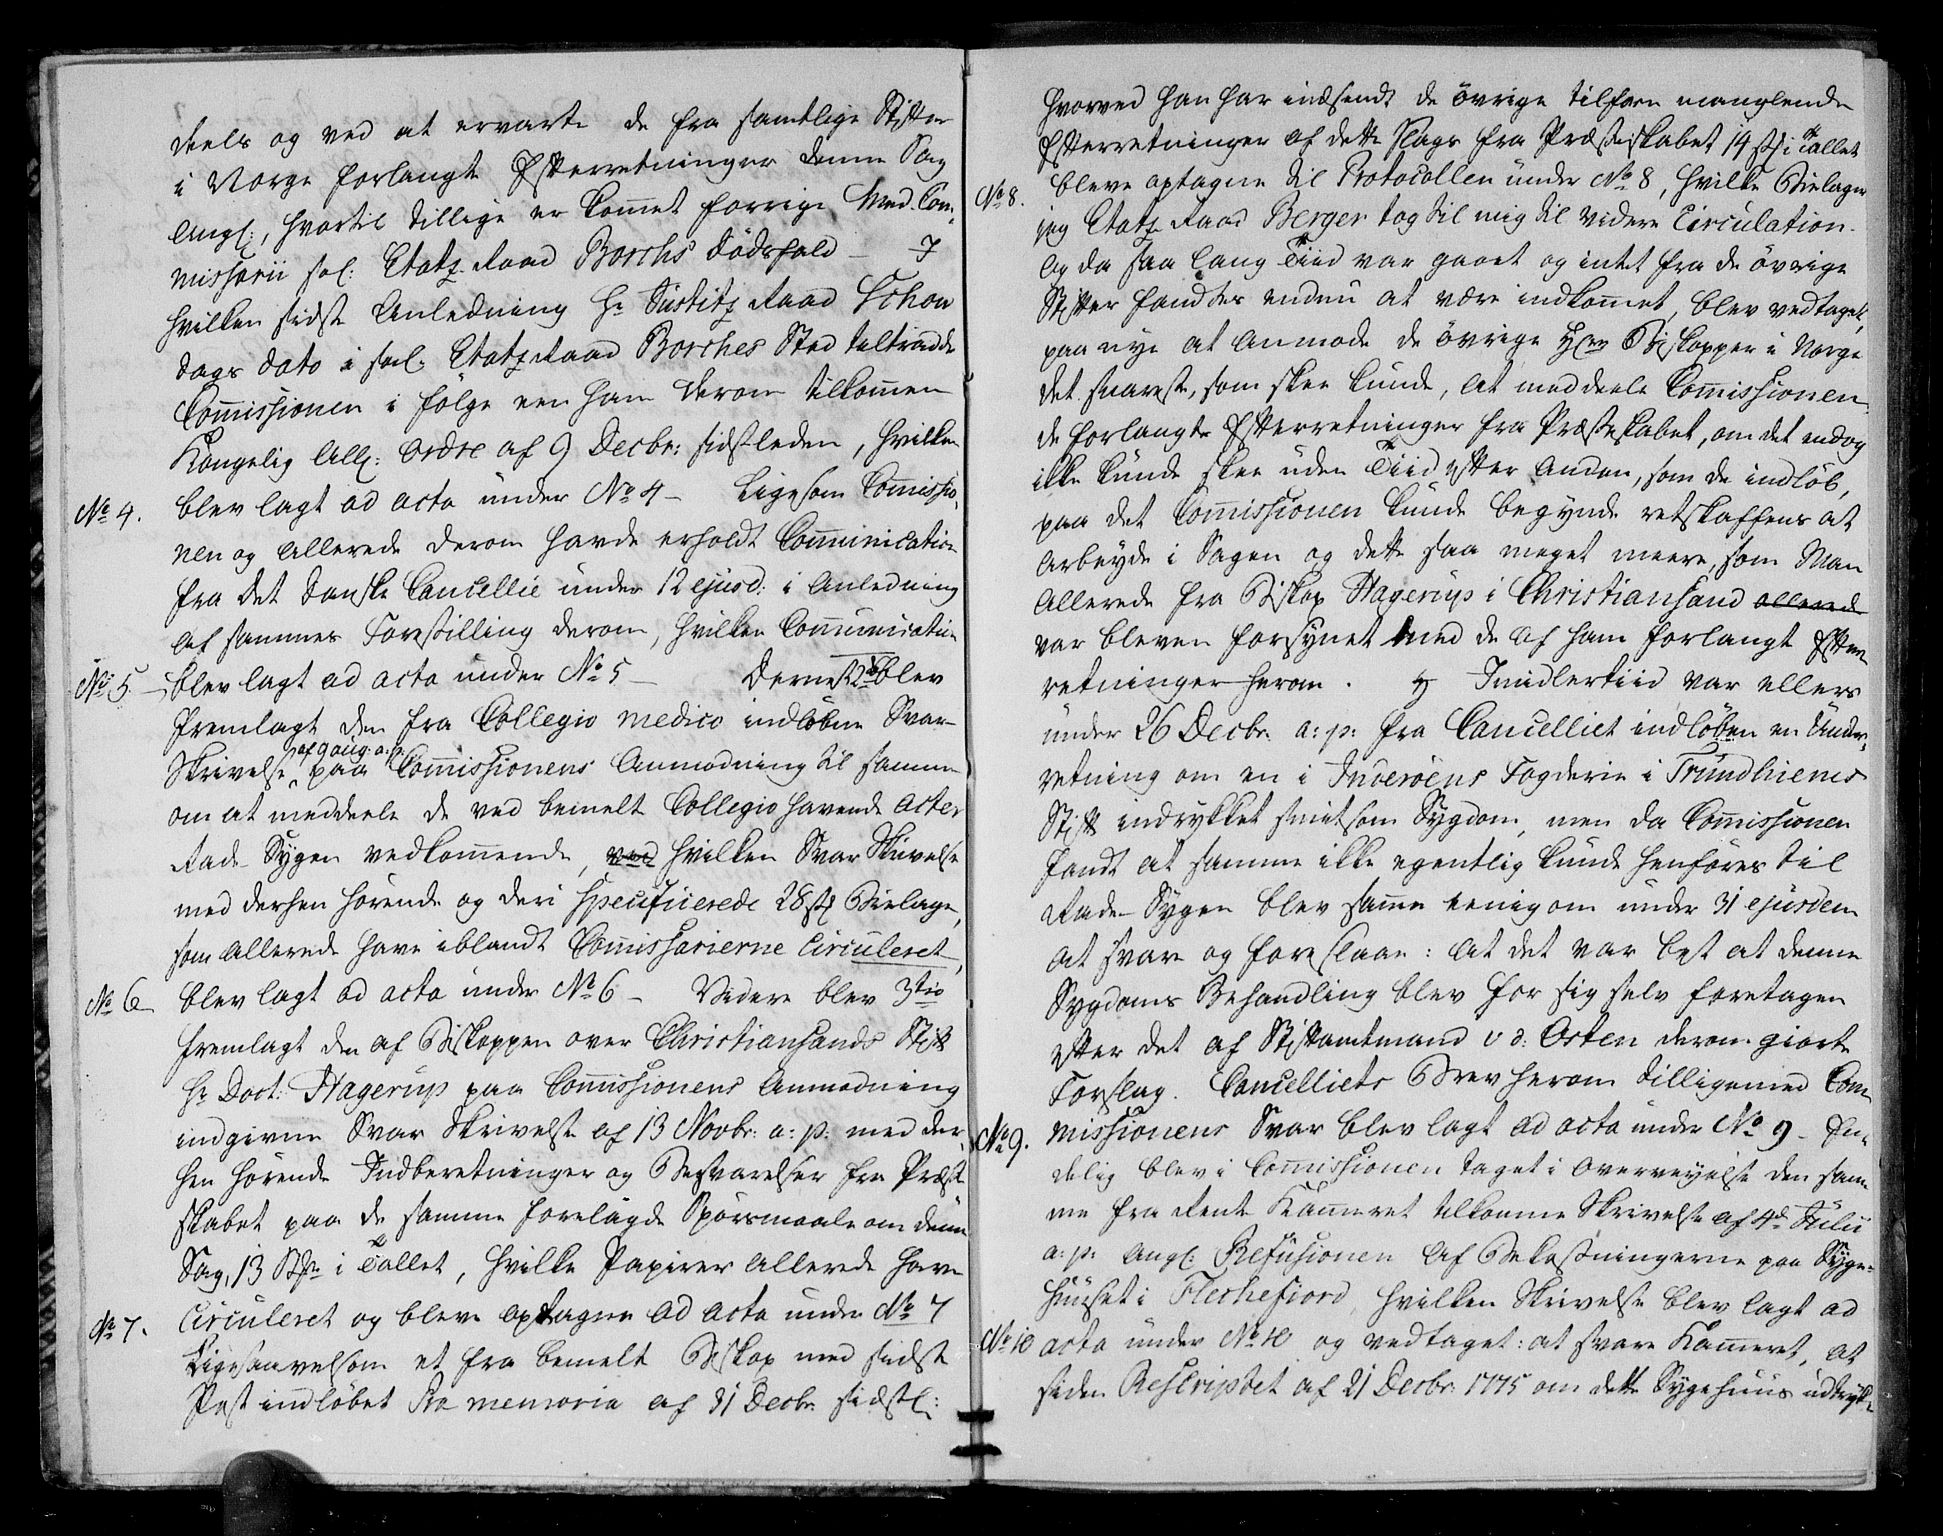 deels og ved at ervarte de fra samtlige Stifter
i Norge forlangte Efterretninger denne Sag
angl:, hvortil tillige er kommet forrige Med. Com-
missarii sal: Etatz Raad Borchs dødsfald - I
hvilken sidste Anledning Hr Justitz Raad Schow
dags dato i sal. Etatz Raad Borches Sted tiltrædde
Commissionen i følge een ham derom tilkommen
Kongelig All: Ordre af 9 Decbr: sidstleden, hvilken
No 4. blev lagt ad acta under No 4 - Ligesom Commissio-
nen og allerede derom havde erholdt Communication
fra det danske Cancellie under 12 ejusd: i Anledning
af sammes Forestilling derom, hvilken Communication
No 5 - blev lagt ad acta under No 5 - Dernest 2do blev
fremlagt den fra Collegio medico indløbne Svar-
Skrivelse af 9 aug: a: p: paa Commissionens Anmodning til samme
om at meddeele de ved bemelt Collegio havende Acter
Rade Sygen vedkommende, ved hvilken Svar Skrivelse
med derhen hørende og deri specificerede 28 st Bielage,
som allerede have iblandt Commissarierne circuleret,
No 6 blev lagt ad acta under No 6 - Videre blev 3tio
fremlagt den af Biskoppen over Christiansands Stift
Hr Doct: Hagerup paa Commissionens Anmodning
indgivne Svar Skrivelse af 13 Novbr: a: p: med der-
hen hørende Indberetninger og Besvarelser fra Præste
skabet paa de samme forelagde Spørsmaale om denne
Sag, 13 St i Tallet, hvilke Papirer allerede have
No 7. Circuleret og bleve optagne ad acta under No 7
Ligesaavelsom et fra bemelt Biskop med sidste
Post indløbet Pro memoria af 31 Decbr. sidstl:
hvorved han har indsendt de øvrige tilforn manglende
Efterretninger af dette Slags fra Præsteskabet 14 st i Tallet
No 8. bleve optagne til Protocollen under No 8, hvilke Bielager
jeg Etatz Raad Berger tog til mig til videre Circulation.
Og da saa lang Tiid var gaaet og intet fra de øvrige
Stifter fandtes endnu at være indkommet, blev vedtaget,
paa nye at anmode de øvrige Hrer Biskopper i Norge
det snareste, som skee kunde, at meddeele Commissionen
de forlangte Efterretninger fra Præsteskabet, om det endog
ikke kunde skee uden Tiid efter anden, som de indløb,
paa det Commissionen kunde begynde retskaffens at
arbeyde i Sagen og dette saa meget meere, som Man
allerede fra Biskop Hagerup i Christiansand allerede
var bleven forsynet med de af ham forlangte Efter-
retninger herom. Imidlertiid var ellers
under 26 Decbr. a: p: fra Cancelliet indløben en Under-
retning om en i Inderøens Fogderie i Trundhiems
Stift indrykket smitsom Sygdom, men da Commissionen
fandt at samme ikke egentlig kunde henføres til
Rade-Sygen blev samme eenig om under 31 ejusdem
at svare og foreslaae: at det var best at denne
Sygdoms Behandling blev for sig selv foretagen
efter det af Stiftamtmand v d: Osten derom giorte
Forslag. Cancelliets Brev herom tilligemed Com-
No 9. missionens Svar blev lagt ad acta under No 9 - En-
delig blev i Commissionen taget i Overveyelse den sam-
me fra Rente Kammeret tilkomne Skrivelse af 4de Julii
a: p: angl: Refusionen af Bekostningerne paa Syge-
huuset i Flechefiord, hvilken Skrivelse blev lagt ad
No 10 acta under No 10 og vedtaget: at svare Kammeret, at
siden Rescriptet af 21 Decbr. 1775 om dette Sygehuus udtryk-